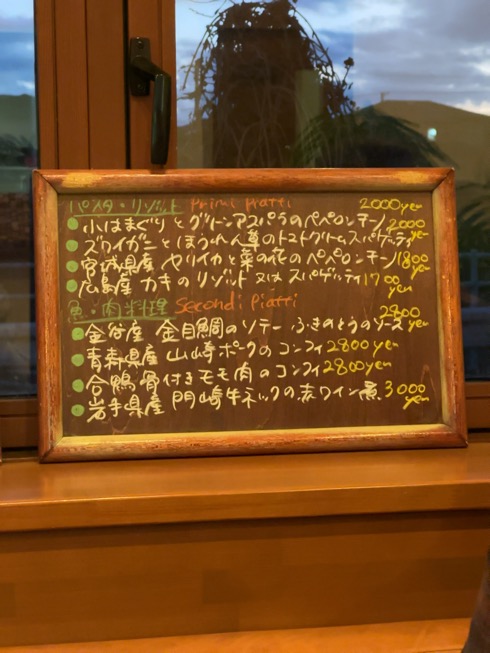 パスタ・リゾット Primi Piatti 2000yen
・小はまぐりとグリーンアスパラのペペロンチーノ 2000yen
・ズワイガニとほうれん草のトマトクリームスパゲッティ
・宮城県産 ヤリイカと菜の花のペペロンチーノ 1800yen
・広島産 カキのリゾット 又は スパゲッティ 1700yen
魚・肉料理 Secondi Piatti 2800yen
・金谷産 金目鯛のソテー ふきのとうのソース
・青森県産 山崎ポークのコンフィ 2800yen
・合鴨骨付きモモ肉のコンフィ 2800yen
・岩手県産 門崎牛ネックの赤ワイン煮 3000yen